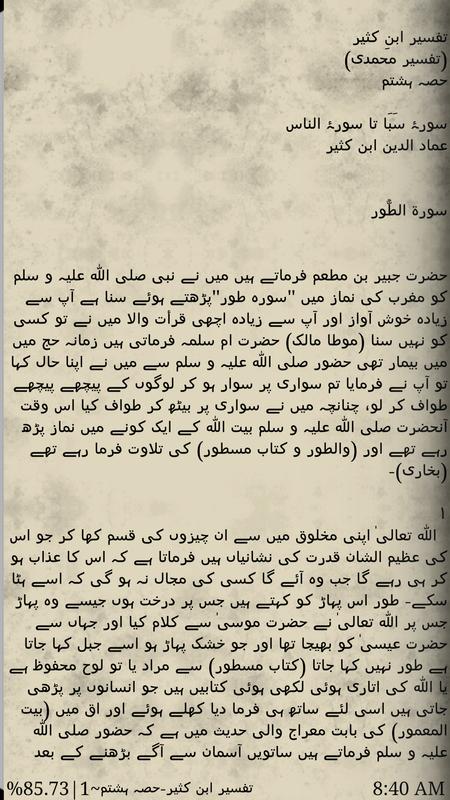 تفسیر ابن کثیر
(تفسیر محمدی)
حصہ ہشتم
سورۂ سَبَا تا سورۂ الناس
عماد الدین ابن کثیر
سورة الطُّور
حضرت جبیر بن مطعم فرماتے ہیں میں نے نبی صلی اللہ علیہ و سلم
کو مغرب کی نماز میں "سورہ طور"پڑھتے ہوئے سنا ہے آپ سے
زیادہ خوش آواز اور آپ سے زیادہ اچھی قرأت والا میں نے تو کسی
کو نہیں سنا (موطا مالک) حضرت ام سلمہ فرماتی ہیں زمانہ حج میں
میں بیمار تھی حضور صلی اللہ علیہ و سلم سے میں نے اپنا حال کہا
تو آپ نے فرمایا تم سواری پر سوار ہو کر لوگوں کے پیچھے پیچھے
طواف کر لو، چنانچہ میں نے سواری پر بیٹھ کر طواف کیا اس وقت
آنحضرت صلی اللہ علیہ و سلم بیت اللہ کے ایک کونے میں نماز پڑھ
رہے تھے اور (والطور و کتاب مسطور) کی تلاوت فرما رہے تھے
(بخاری)-
۱
اللہ تعالیٰ اپنی مخلوق میں سے ان چیزوں کی قسم کھا کر جو اس
کی عظیم الشان قدرت کی نشانیاں ہیں فرماتا ہے کہ اس کا عذاب ہو
کر ہی رہے گا جب وہ آئے گا کسی کی مجال نہ ہو گی کہ اسے ہٹا
سکے- طور اس پہاڑ کو کہتے ہیں جس پر درخت ہوں جیسے وہ پہاڑ
جس پر اللہ تعالیٰ نے حضرت موسیٰ سے کلام کیا اور جہاں سے
حضرت عیسیٰ کو بھیجا تھا اور جو خشک پہاڑ ہو اسے جبل کہا جاتا
ہے طور نہیں کہا جاتا (کتاب مسطور) سے مراد یا تو لوح محفوظ ہے
یا اللہ کی اتاری ہوئی لکھی ہوئی کتابیں ہیں جو انسانوں پر پڑھی
جاتی ہیں اسی لئے ساتھ ہی فرما دیا کھلے ہوئے اور اق میں (بیت
المعمور) کی بابت معراج والی حدیث میں ہے کہ حضور صلی اللہ
علیہ و سلم فرماتے ہیں ساتویں آسمان سے آگے بڑھنے کے بعد
8:40 AM تفسیر ابن کثیر-حصہ ہشتم~1|%85.73